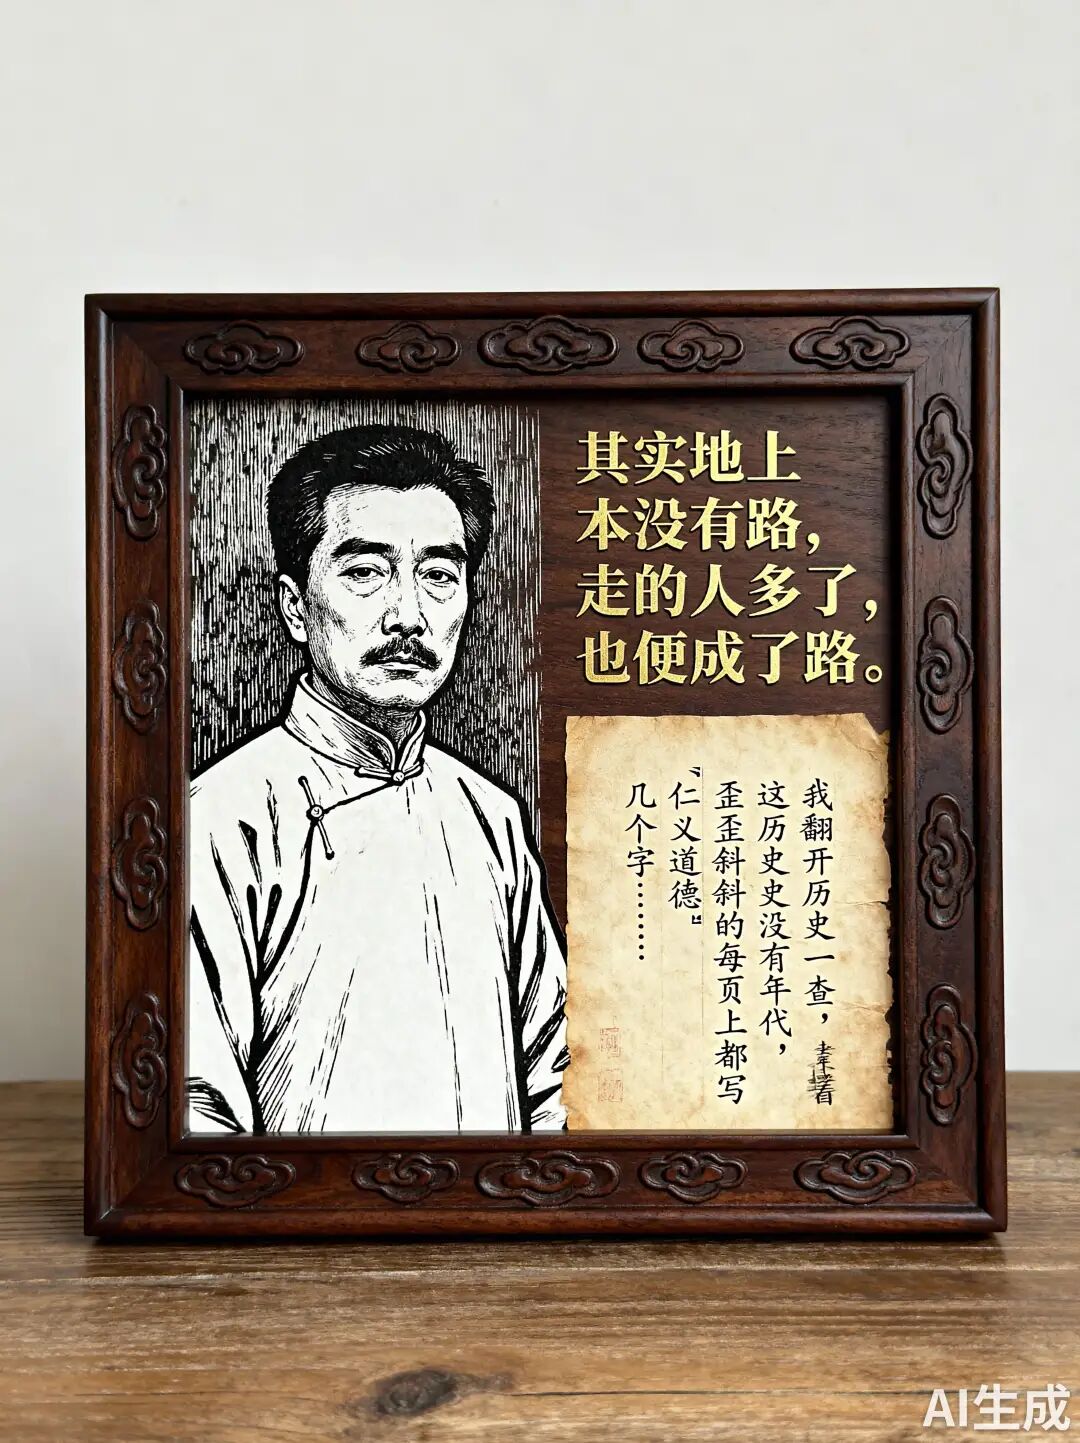 其实地上
本没有路，
走的人多了，
也便成了路。
我翻开历史一查，
这历史史没有年代，
歪歪斜斜的每页上都写
“仁义道德”
几个字………
AI生成